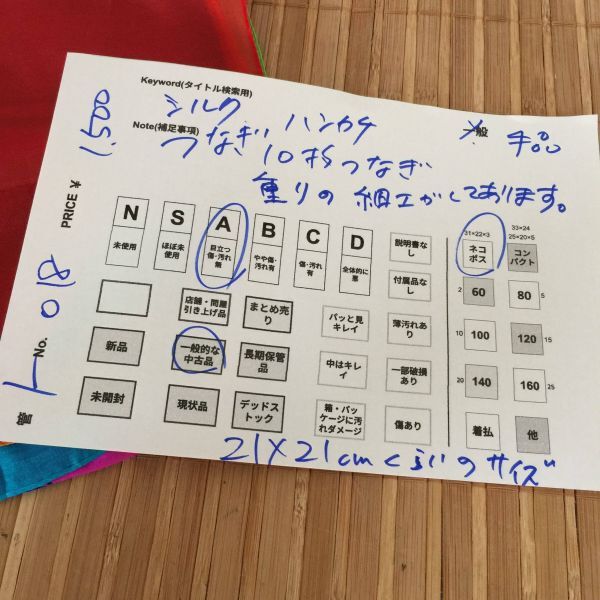 Keyword(タイトル検索用)
シルク
Note(補足事項) つなぎ ハンカチ 一般
10枚つなぎ
重りの細工がしてあります。
PRICE ¥ 1.500
No. 018
N S A B C D
未使用 ほぼ未使用 目立つ傷・汚れ無 やや傷・汚れ有 傷・汚れ有 全体的に悪
説明書なし
付属品なし
店舗・問屋引き上げ品 まとめ売り パッと見キレイ 薄汚れあり
新品 一般的な中古品 長期保管品 中はキレイ 一部破損あり
未開封 現状品 デッドストック 箱・パッケージに汚れダメージ 傷あり
31×22×3 33×24
25×20×5
ネコポス コンパクト
2 60 80 5
10 100 120 15
20 140 160 25
着払 他
21×21cmくらいのサイズ